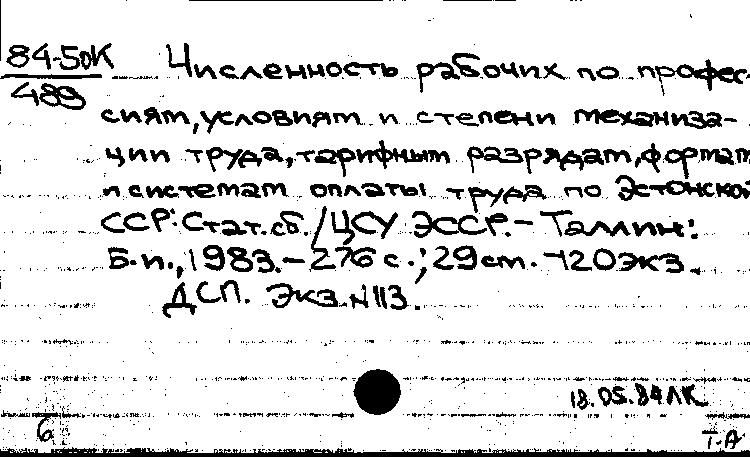 84-5дК
489
Численность рабочих по профес-
сиям, условиям и степени механиза-
ции труда, тарифным разрядам, формам
и системам оплаты труда по Эстонской
ССР: Стат. сб. / ЦСУ ЭССР. - Таллин:
Б. и., 1983. - 276 с.; 29 см. - 120 экз.
ДСП. Экз. N 113.
18.05.84 ЛК
6
Т-А